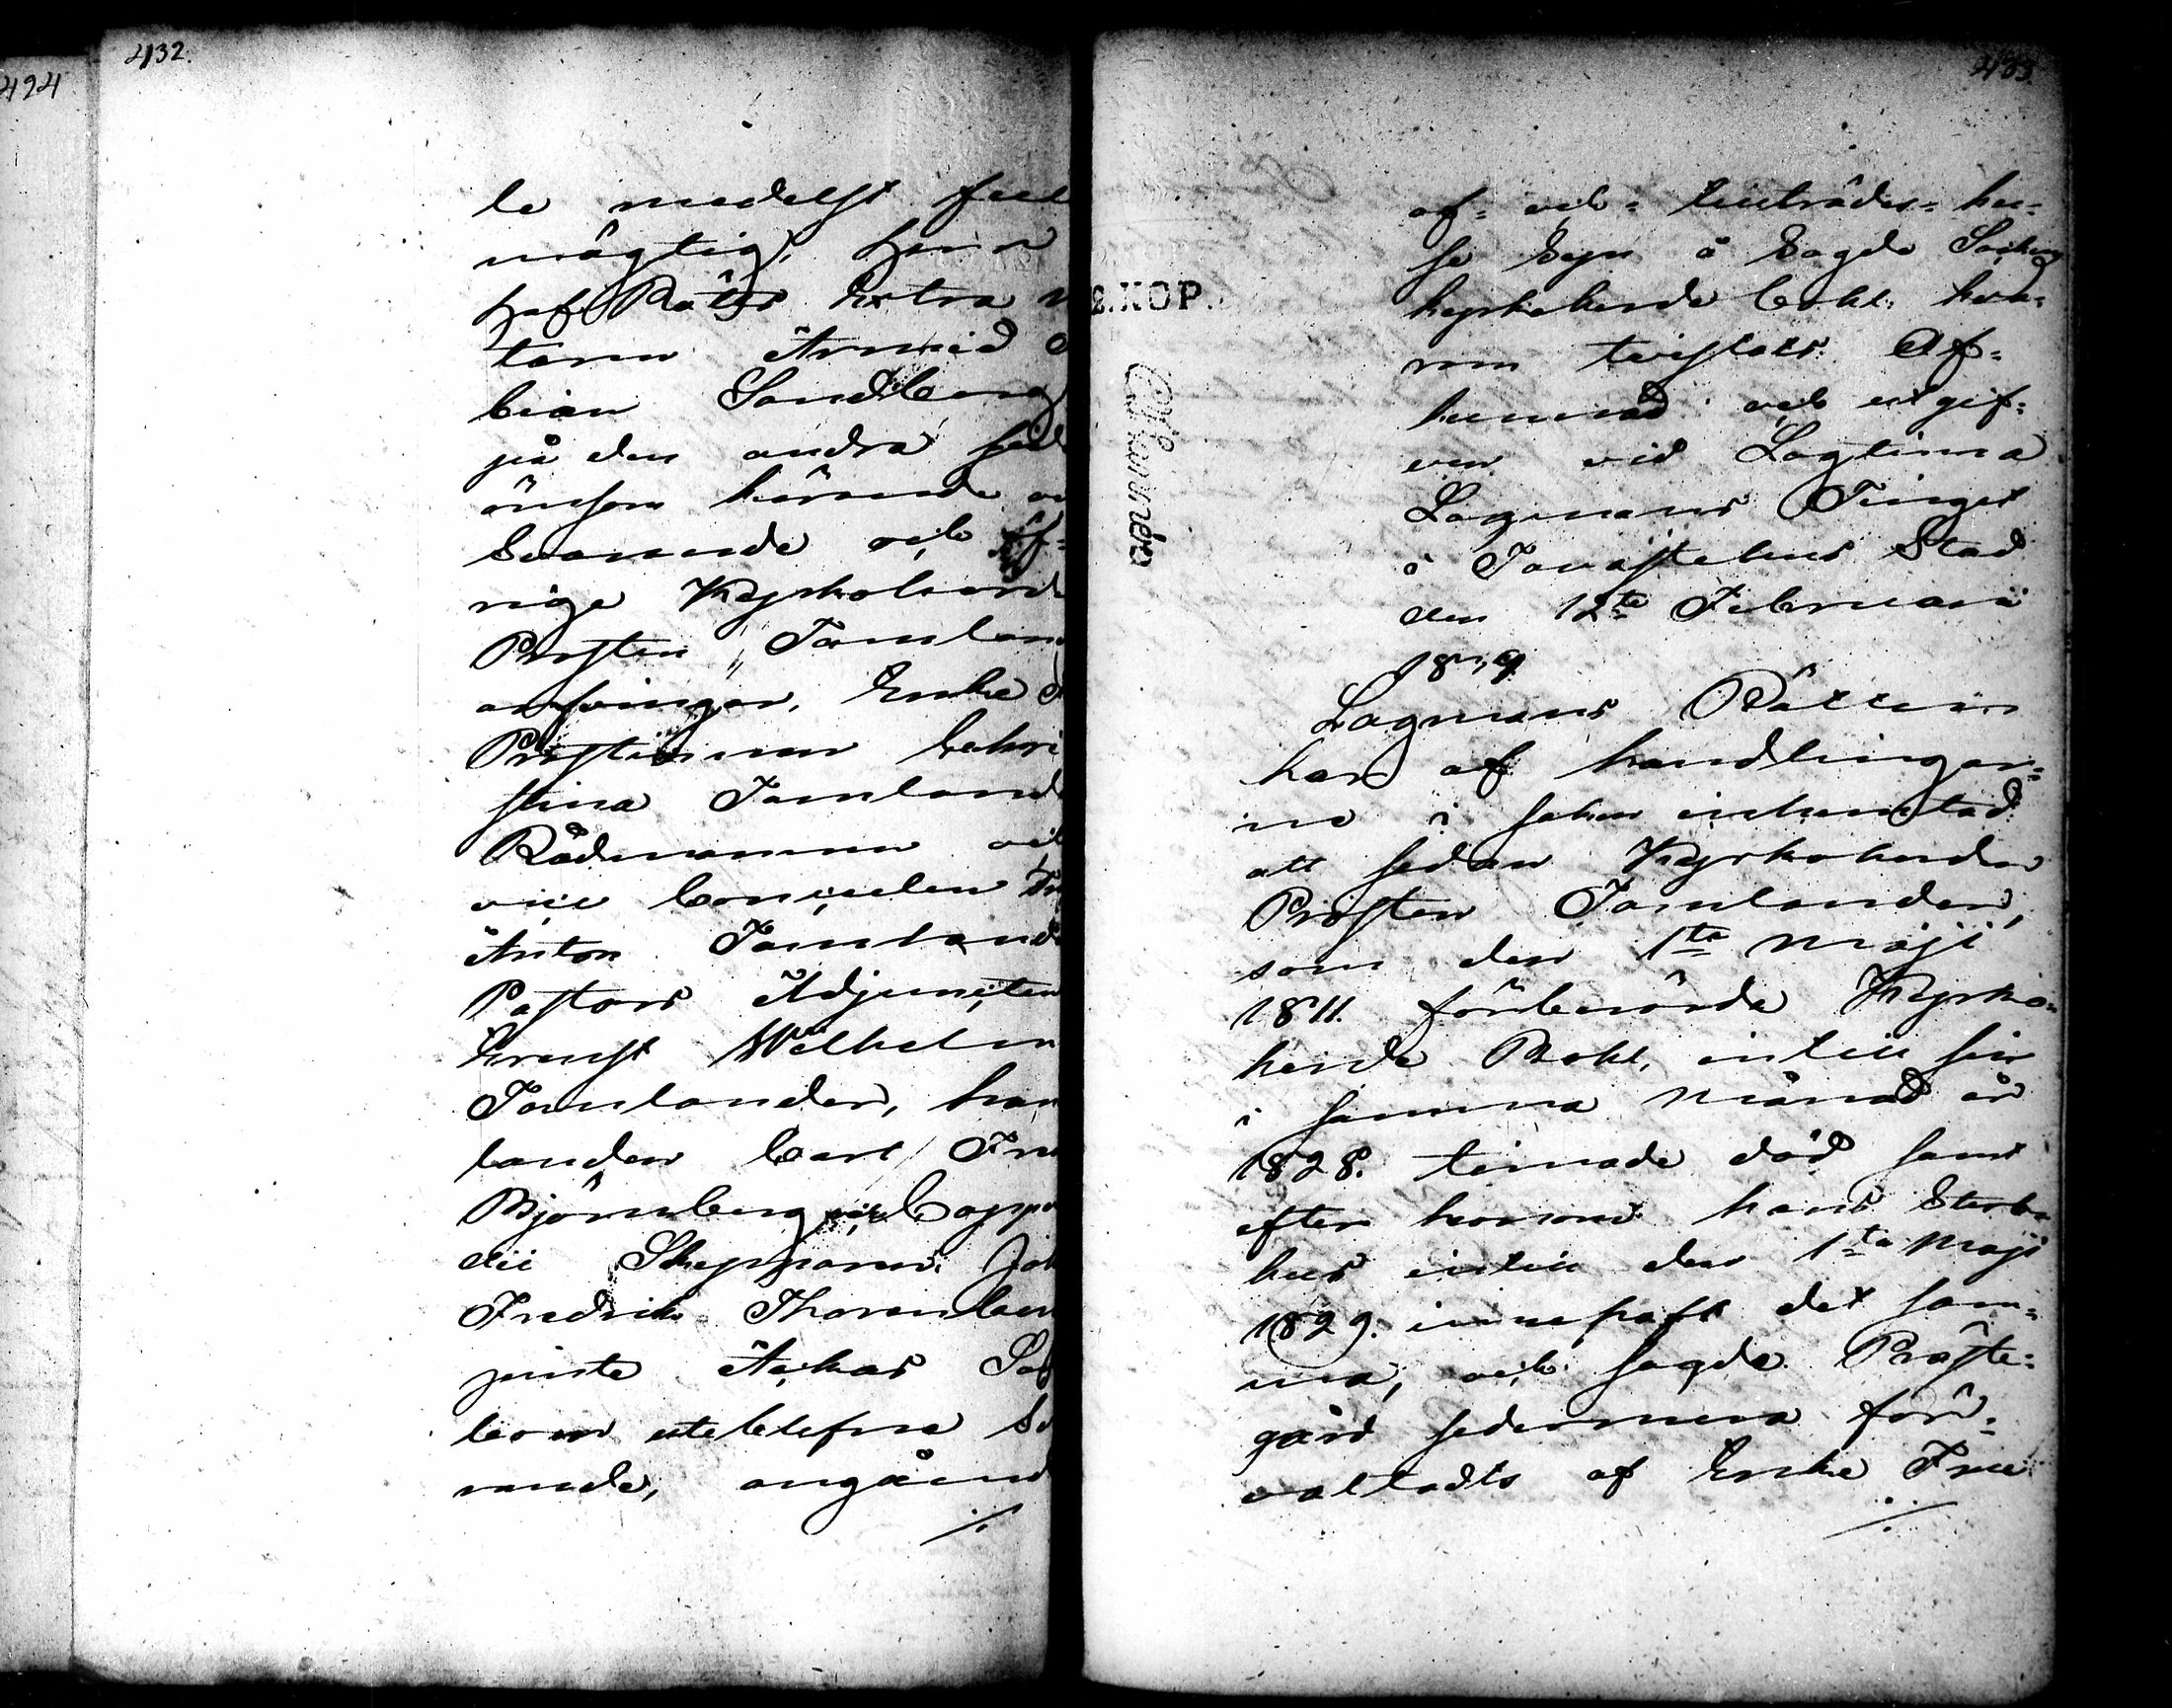 424
432.
le medelst full
mägtig, Herr
Hof Rätts Extra
tarien Arvid
bian Sandberg
på den andra sed
önsom kärande
Svarande och öf-
rige Kyrkoherd
Prosten Tamlan
arfvingar, Enke
Prostinnan Cathri
stina Tamland
Rådmannen och
vice Consulen
Anton Tamland
Pastors Adjuncten
Ernst Wilhelm
Tamlander, han
landen Carl Fre
Björnberg och Cappe
dii Skepparen Joh
Fredrik Thoren
juste Ackas
leon uteblefne
rande, angåend
./.
433.
2.KOP.
af- och tillträdes- hu-
se Syn å Sagde
kyrkoherde Bohl. hva-
rom tvistats. Af-
kunnad och utgif-
ven vid Lagtima
Lagmans Tinget
i Tavastehus Stad
den 12te Februari
1839
Lagmans Rätten
har af handlingar-
ne i saken inhemtad
att sedan Kyrkoherden
Prosten Tamlander,
som den 1te Maji
1811. förberörde Kyrko-
herde Bohl, intill sin
i samma månad år
1828. timade död samt
efter honom hans Sterb-
hus intill den 1ta Maji
1829. innehaft det sam-
ma, och sagde Präste-
gård sedermera för-
valtadts af Enke Fru
./.